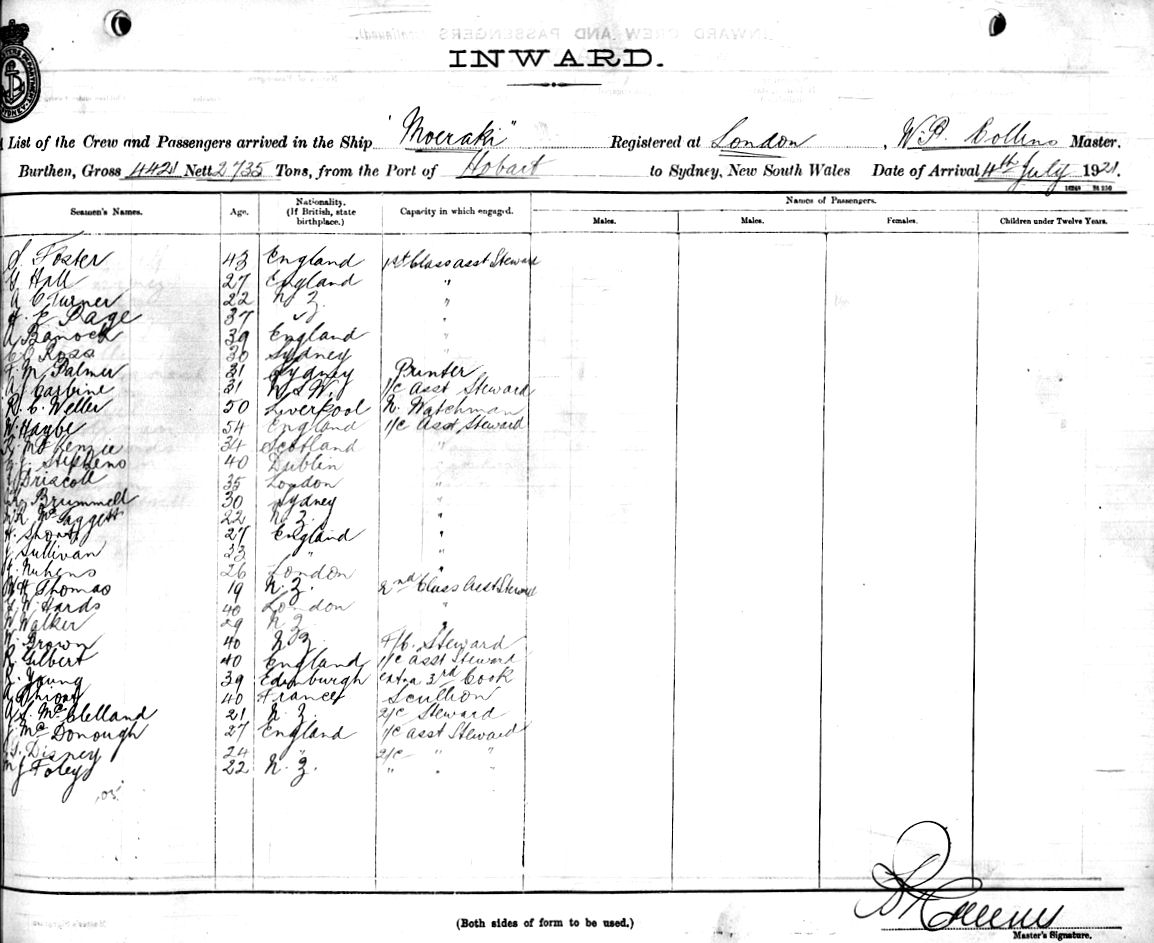 INWARD.
List of the Crew and Passengers arrived in the Ship "Moeraki" Registered at London, W. P. Collins Master.
Burthen, Gross 4421 Nett 2735 Tons, from the Port of Hobart to Sydney, New South Wales Date of Arrival 4th July 1921.
Names of Passengers.
Seamen's Names. Age. Nationality. (If British, state birthplace.) Capacity in which engaged. Males. Males. Females. Children under Twelve Years.
Foster 43 England 1st Class asst Steward
Hall 27 England "
A C Turner 22 N Z "
E Page 37 "
39 England "
Ross 30 Sydney "
M Palmer 31 Sydney Printer
Carbine 31 N.S.W. 1/c asst Steward
R. C. Weller 50 Liverpool N. Watchman
W. 54 England 1/c Asst Steward
McKenzie 34 Scotland "
Stephens 40 Dublin "
Driscoll 35 London "
Brummell 30 Sydney "
22 N.Z. "
27 England "
Sullivan 33 " "
26 London "
W H Thomas 19 N.Z. 2nd Class Asst Steward
W. Hards 40 London "
W Walker 29 N Z "
Brown 40 N Z Steward
Gilbert 40 England 1/c asst Steward
Young 39 Edinburgh extra 3rd Cook
40 France Scullion
McClelland 21 N.Z. 2/c Steward
J McDonough 27 England 1/c asst Steward
Disney 24 " 2/c " "
J Foley 22 N.Z. " " "
(Both sides of form to be used.)
Master's Signature.